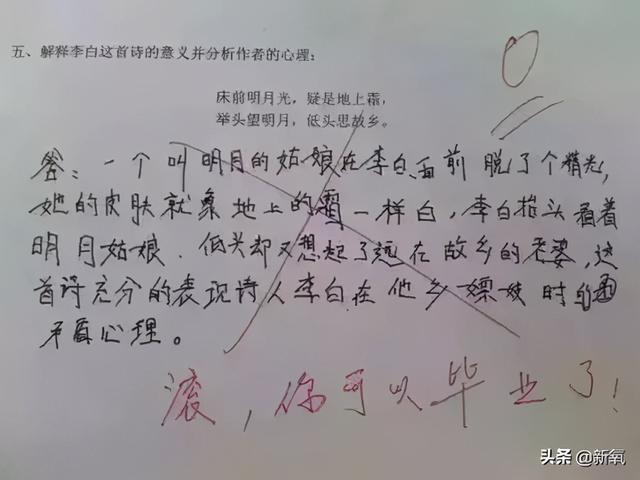 五、解释李白这首诗的意义并分析作者的心理：
床前明月光，疑是地上霜，
举头望明月，低头思故乡。
答：一个叫明月的姑娘在李白面前脱了个精光，
她的皮肤就象地上的霜一样白，李白抬头看着
明月姑娘，低头却又想起了远在故乡的老婆，这
首诗充分的表现诗人李白在他乡嫖妓时的
矛盾心理。
滚，你可以毕业了！
头条 @新氧